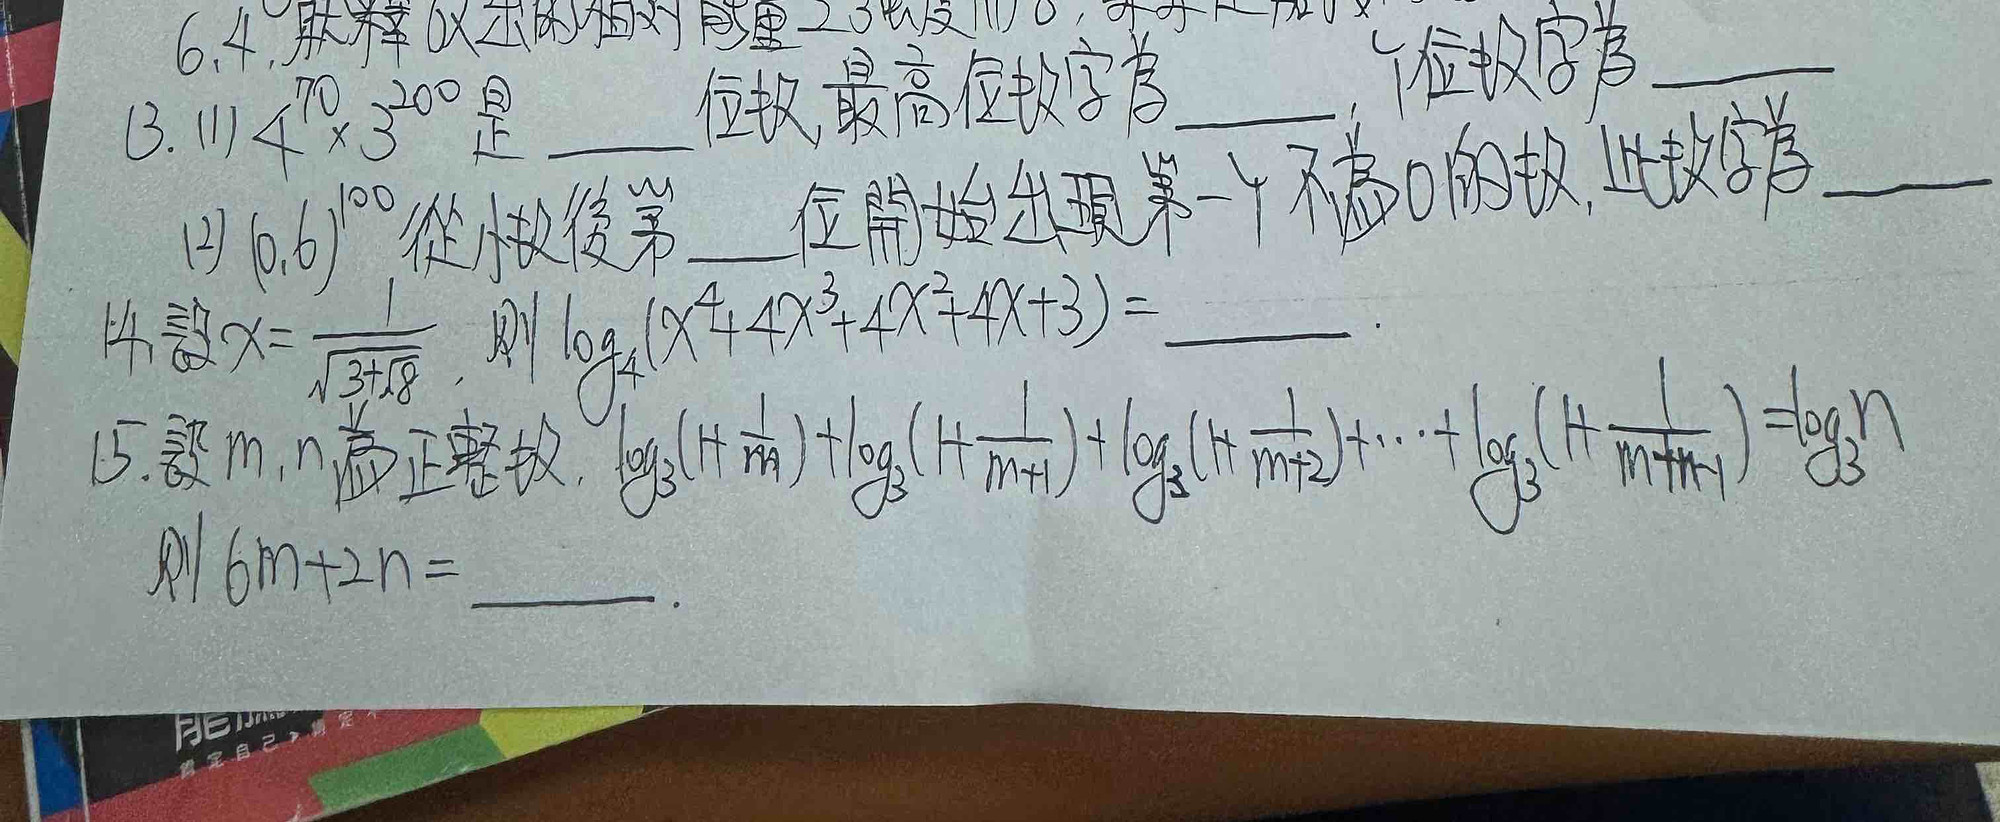 6.4,
13.(1) 4^70×3^200是____位数,最高位数字为____,个位数字为____
(2) (0.6)^100 從小数後第____位開始出現第一个不為0的数,此数字为____
14.設x=1/√(3+√8),則log_4(x^4+4x^3+4x^2+4x+3)=____.
15.設m,n為正整数,log_3(1+1/m)+log_3(1+1/(m+1))+log_3(1+1/(m+2))+…+log_3(1+1/(m+n-1))=log_3 n
則6m+2n=____.
肯定自己>肯定